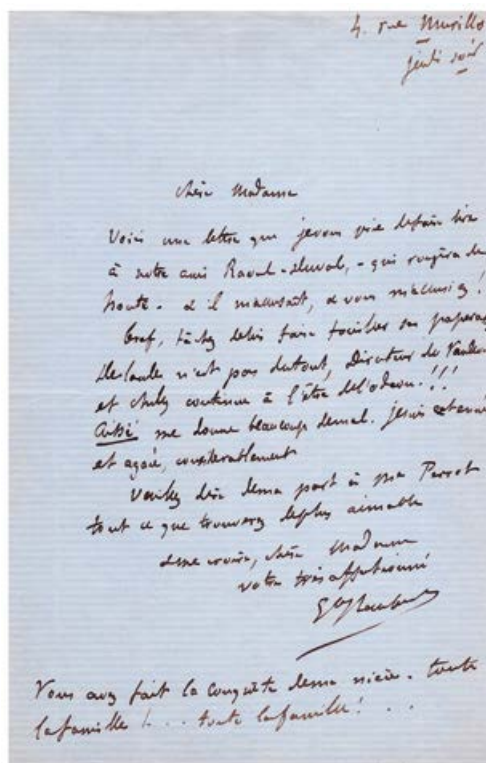 4. rue Murillo
jeudi soir
chère Madame
Voici une lettre que je vous prie de faire lire
à notre ami Raoul-Duval, - qui rougira de
honte. - & il m'accusait, & vous m'accusiez !
bref, tâchez de lui faire fouiller ses paperasses
n'est pas du tout, Directeur du Vaudev
et Chilly continue à l'être de l'odéon. !!!
Aïssé me donne beaucoup de mal. je suis exténué
et agacé, considérablement
Veuillez dire de ma part à Me Perrot
tout ce que trouverez de plus aimable
& me croire, chère Madame
votre très affectionné
Gve Flaubert
Vous avez fait la conquête de ma nièce. toute
la famille !... toute la famille !...